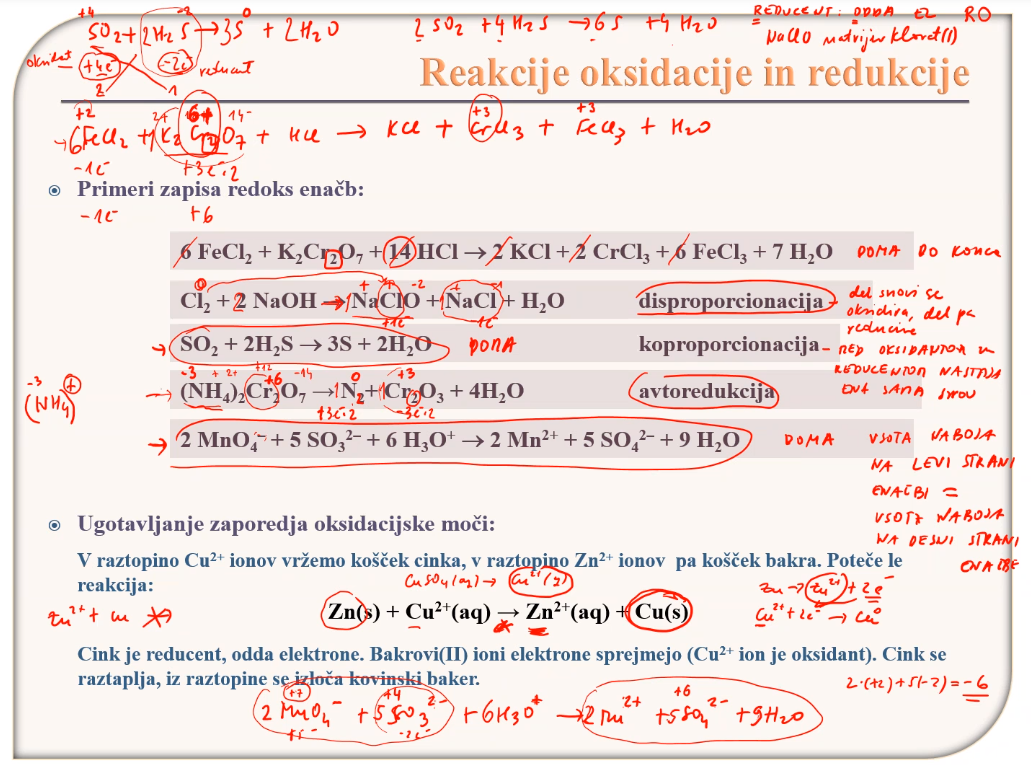 +4 -2 0
SO₂ + 2H₂S → 3S + 2H₂O
2 SO₂ + 4 H₂S → 6S + 4 H₂O
REDUCENT: ODDA e⁻ RO
NaClO natrijev klorat(I)
oksidant +4e⁻ -2e⁻ reducent
2 1
Reakcije oksidacije in redukcije
+2 2+ 6+ 14- +3 +3
6FeCl₂ + 1K₂Cr₂O₇ + HCl → KCl + CrCl₃ + FeCl₃ + H₂O
-1e⁻ +3e⁻·2
Primeri zapisa redoks enačb:
-1e⁻ +6
6 FeCl₂ + K₂Cr₂O₇ + 14 HCl → 2 KCl + 2 CrCl₃ + 6 FeCl₃ + 7 H₂O DOMA DO KONCA
0 + + -2 + -1
Cl₂ + 2 NaOH → 1NaClO + 1NaCl + H₂O disproporcionacija - del snovi se
oksidira, del pa
reducira
+1e⁻ -1e⁻
SO₂ + 2H₂S → 3S + 2H₂O DOMA koproporcionacija - MED OKSIDANTOM IN
REDUCENTOM NASTAJA
ENA SAMA SNOV
-3 + 2+ +12 +6 -14 0 +3
(NH₄)₂Cr₂O₇ → 1N₂ + 1Cr₂O₃ + 4H₂O avtoredukcija
-3 +
(NH₄)
+3e⁻·2 -3e⁻·2
2 MnO₄⁻ + 5 SO₃²⁻ + 6 H₃O⁺ → 2 Mn²⁺ + 5 SO₄²⁻ + 9 H₂O DOMA
VSOTA NABOJA
NA LEVI STRANI
ENAČBI =
VSOTA NABOJA
NA DESNI STRANI
ENAČBE
Ugotavljanje zaporedja oksidacijske moči:
V raztopino Cu²⁺ ionov vržemo košček cinka, v raztopino Zn²⁺ ionov pa košček bakra. Poteče le
reakcija:
CuSO₄(aq) → Cu²⁺(g)
Zn → Zn²⁺ + 2e⁻
Zn²⁺ + Cu
Zn(s) + Cu²⁺(aq) → Zn²⁺(aq) + Cu(s)
Cu²⁺ + 2e⁻ → Cu⁰
Cink je reducent, odda elektrone. Bakrovi(II) ioni elektrone sprejmejo (Cu²⁺ ion je oksidant). Cink se
raztaplja, iz raztopine se izloča kovinski baker.
2·(+2)+5(-2)=-6
+7 +4 +6
2 MnO₄⁻ + 5SO₃²⁻ + 6H₃O⁺ → 2Mn²⁺ + 5SO₄²⁻ + 9H₂O
+5e⁻ -2e⁻